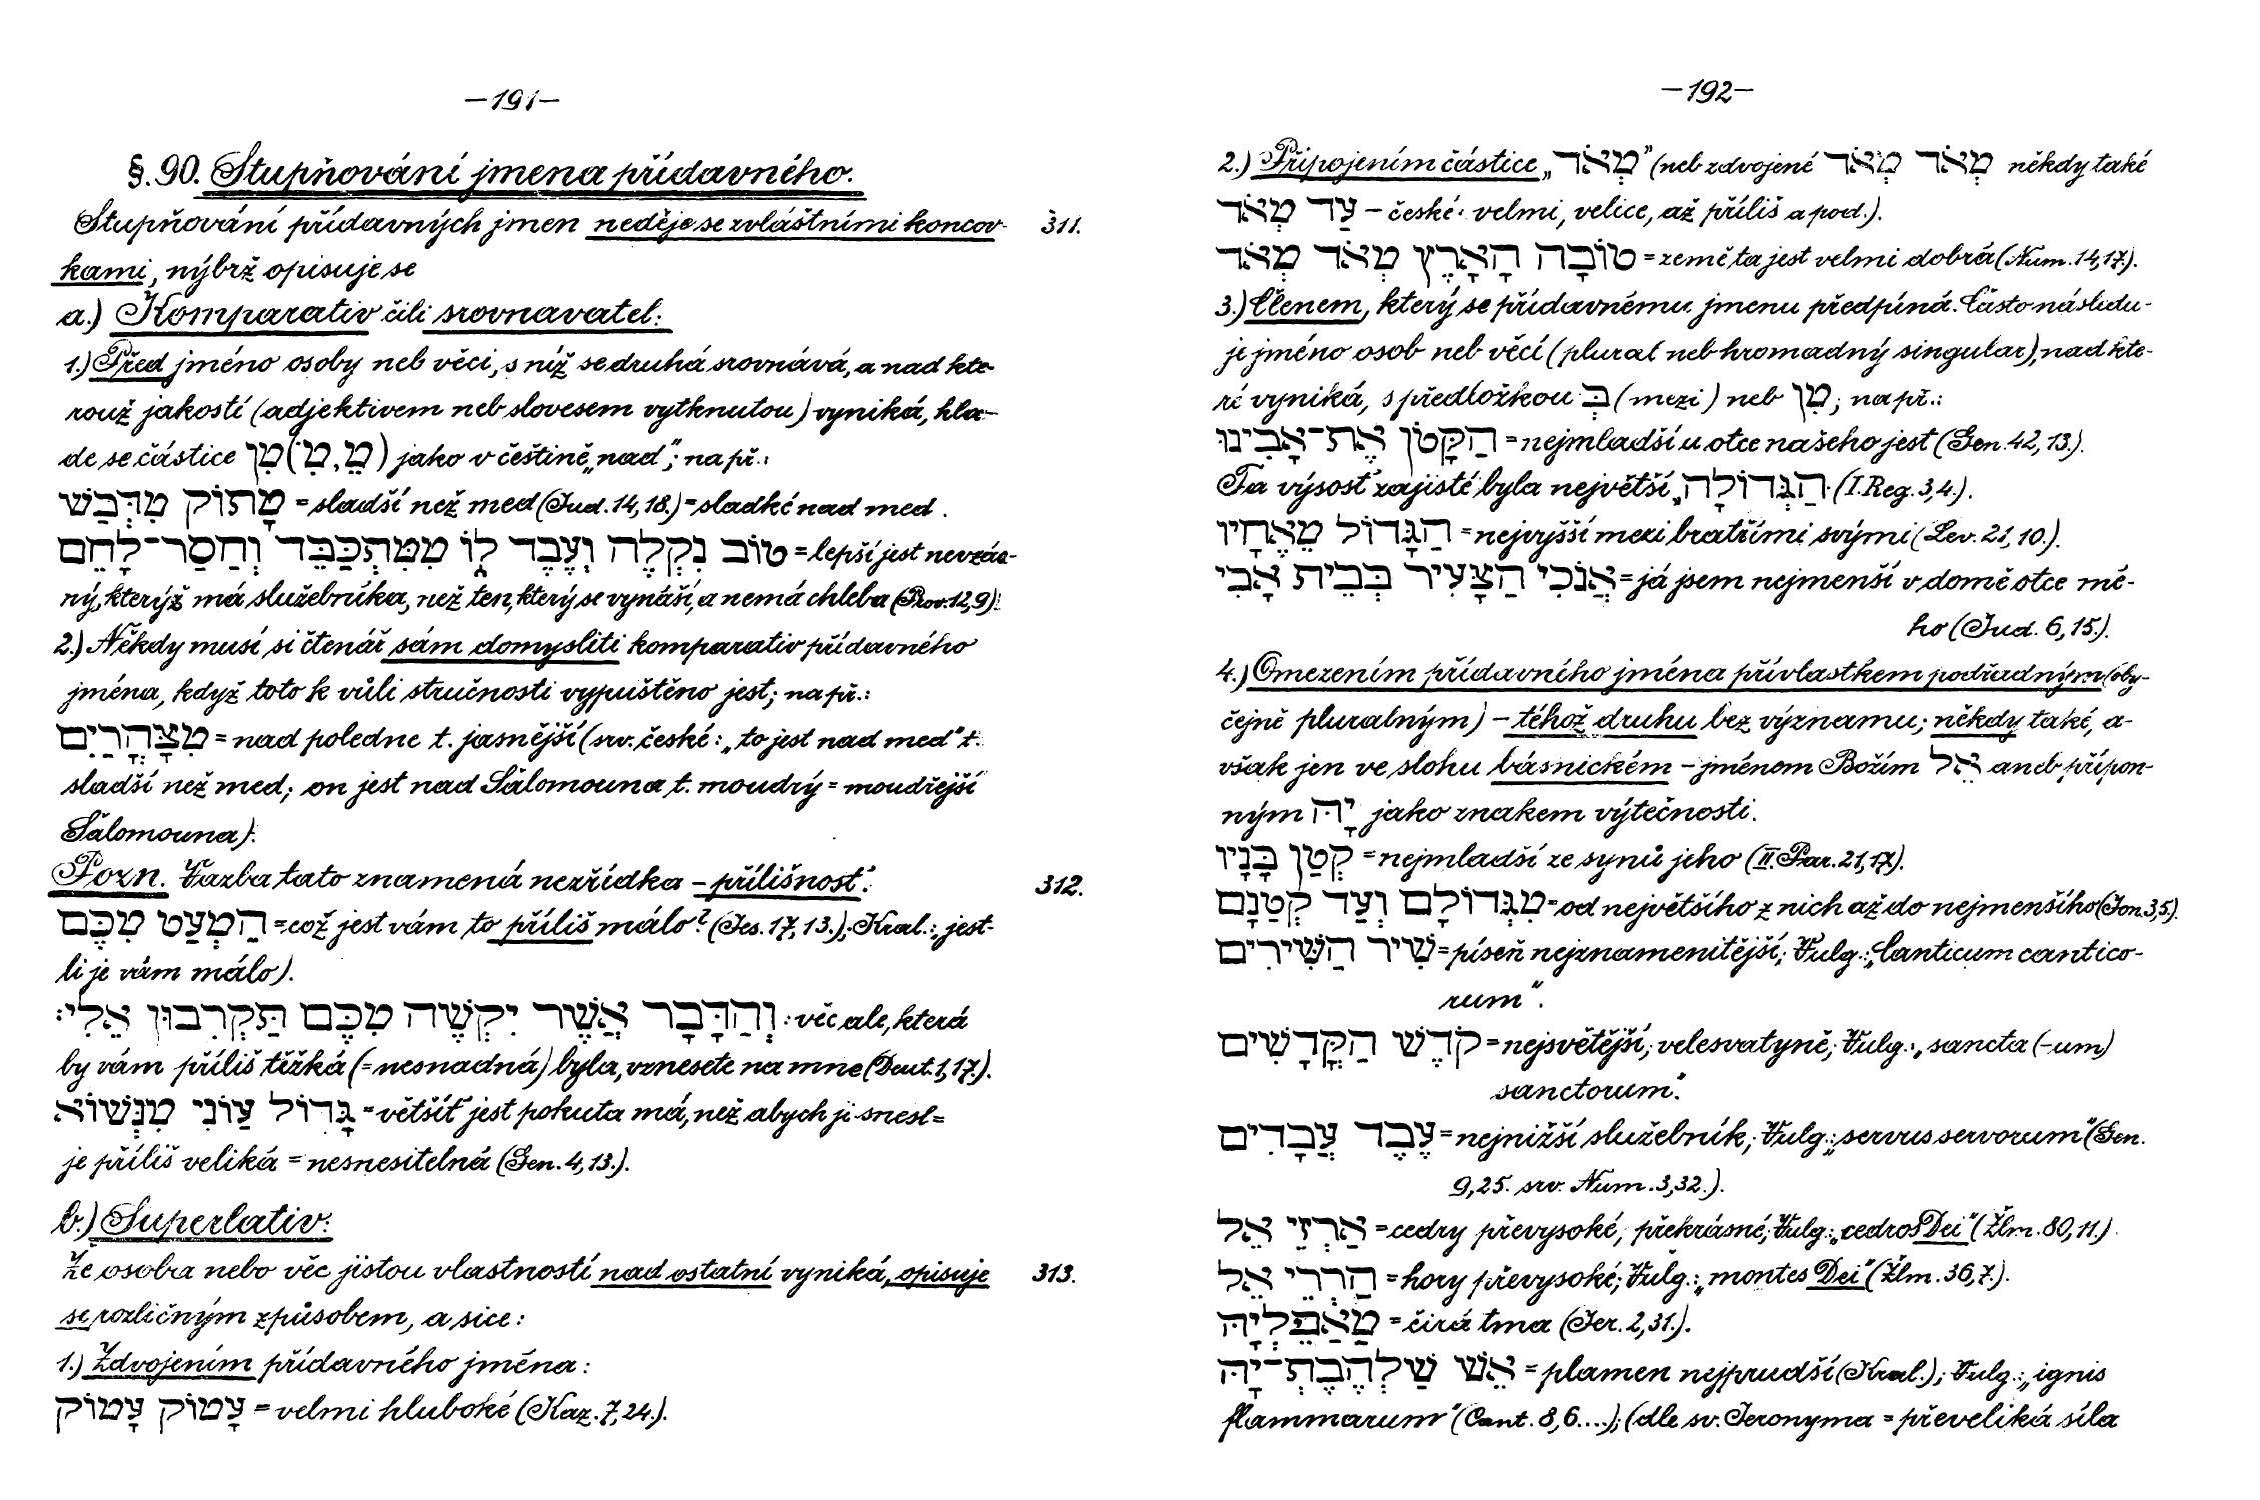 —191—
§. 90. Stupňování jmena přídavného.
Stupňování přídavných jmen neděje se zvláštními koncov- 311.
kami, nýbrž opisuje se
a.) Komparativ čili srovnavatel:
1.) Před jméno osoby neb věci, s níž se druhá srovnává, a nad kte-
rouž jakostí (adjektivem neb slovesem vytknutou) vyniká, kla-
de se částice מִן (מִ֗, מֵ) jako v češtině „nad"; na př.:
מָתוֹק מִדְּבַשׁ = sladší než med (Jud. 14, 18.) = sladké nad med.
טוֹב נִקְלֶה וְעֶבֶד לוֹ מִמִּתְכַּבֵּד וְחַסַר־לָחֶם = lepší jest nevzác-
ný, kterýž má služebníka, než ten, který se vynáší, a nemá chleba (Prov. 12, 9).
2.) Někdy musí si čtenář sám domysliti komparativ přídavného
jména, když toto k vůli stručnosti vypuštěno jest; na př.:
מִצָּהֳרַיִם = nad poledne t. jasnější (srv. české: „to jest nad med" t.
sladší než med; on jest nad Šalomouna t. moudrý = moudřejší
Šalomouna).
Pozn. Vazba tato znamená nezřídka – přílišnost. 312.
הַמְעַט מִכֶּם = což jest vám to příliš málo? (Jes. 17, 13.); Kral.: jest-
li je vám málo).
וְהַדָּבָר אֲשֶׁר יִקְשֶׁה מִכֶּם תַּקְרִבוּן אֵלַי: věc ale, která
by vám příliš těžká (= nesnadná) byla, vznesete na mne (Deut. 1, 17.).
גָּדוֹל עֲוֹנִי מִנְּשׂוֹא = větší jest pokuta má, než abych ji snesl =
je příliš veliká = nesnesitelná (Gen. 4, 13.).
b.) Superlativ:
Že osoba nebo věc jistou vlastností nad ostatní vyniká, opisuje 313.
se rozličným způsobem, a sice:
1.) Zdvojením přídavného jména:
עָמוֹק עָמוֹק = velmi hluboké (Kaz. 7, 24.).
—192—
2.) Připojením částice „מְאֹד" (neb zdvojené מְאֹד מְאֹד někdy také
עַד מְאֹד – české: velmi, velice, až příliš a pod.).
טוֹבָה הָאָרֶץ מְאֹד מְאֹד = země ta jest velmi dobrá (Num. 14, 17.).
3.) Členem, který se přídavnému jmenu předpíná. Často následu-
je jméno osob neb věcí (plural neb hromadný singular), nad kte-
ré vyniká, s předložkou בְּ (mezi) neb מִן; na př.:
הַקָּטֹן אֶת־אָבִינוּ = nejmladší u otce našeho jest (Gen. 42, 13.).
Ta výsosť zajisté byla největší „הַגְּדוֹלָה" (I. Reg. 3, 4.).
הַגָּדוֹל מֵאֶחָיו = nejvyšší mezi bratřími svými (Lev. 21, 10.).
אֲנֹכִי הַצָּעִיר בְּבֵית אָבִי = já jsem nejmenší v domě otce mé-
ho (Jud. 6, 15.).
4.) Omezením přídavného jména přívlastkem podřadným (oby-
čejně pluralným) – téhož druhu bez významu; někdy také, a-
však jen ve slohu básnickém – jménem Božím אֵל aneb přípon-
ným יָהּ jako znakem výtečnosti.
קְטֹן בָּנָיו = nejmladší ze synů jeho (II. Par. 21, 17.).
מִגְּדוֹלָם וְעַד קְטַנָּם = od největšího z nich až do nejmenšího (Jon. 3, 5).
שִׁיר הַשִּׁירִים = píseň nejznamenitější; Vulg.: „Canticum cantico-
rum".
קֹדֶשׁ הַקֳּדָשִׁים = nejsvětější; velesvatyně; Vulg.: „sancta (-um)
sanctorum".
עֶבֶד עֲבָדִים = nejnižší služebník; Vulg.: „servus servorum" (Gen.
9, 25. srv. Num. 3, 32.).
אַרְזֵי אֵל = cedry převysoké, překrásné; Vulg.: „cedros Dei" (Žlm. 80, 11.)
הַרְרֵי אֵל = hory převysoké; Vulg.: „montes Dei" (Žlm. 36, 7.).
מַאְפֵּלְיָה = čirá tma (Jer. 2, 31.).
אֵשׁ שַׁלְהֶבֶתְ־יָה = plamen nejprudší (Kral.); Vulg.: „ignis
flammarum" (Cant. 8, 6....); (dle sv. Jeronyma = převeliká síla